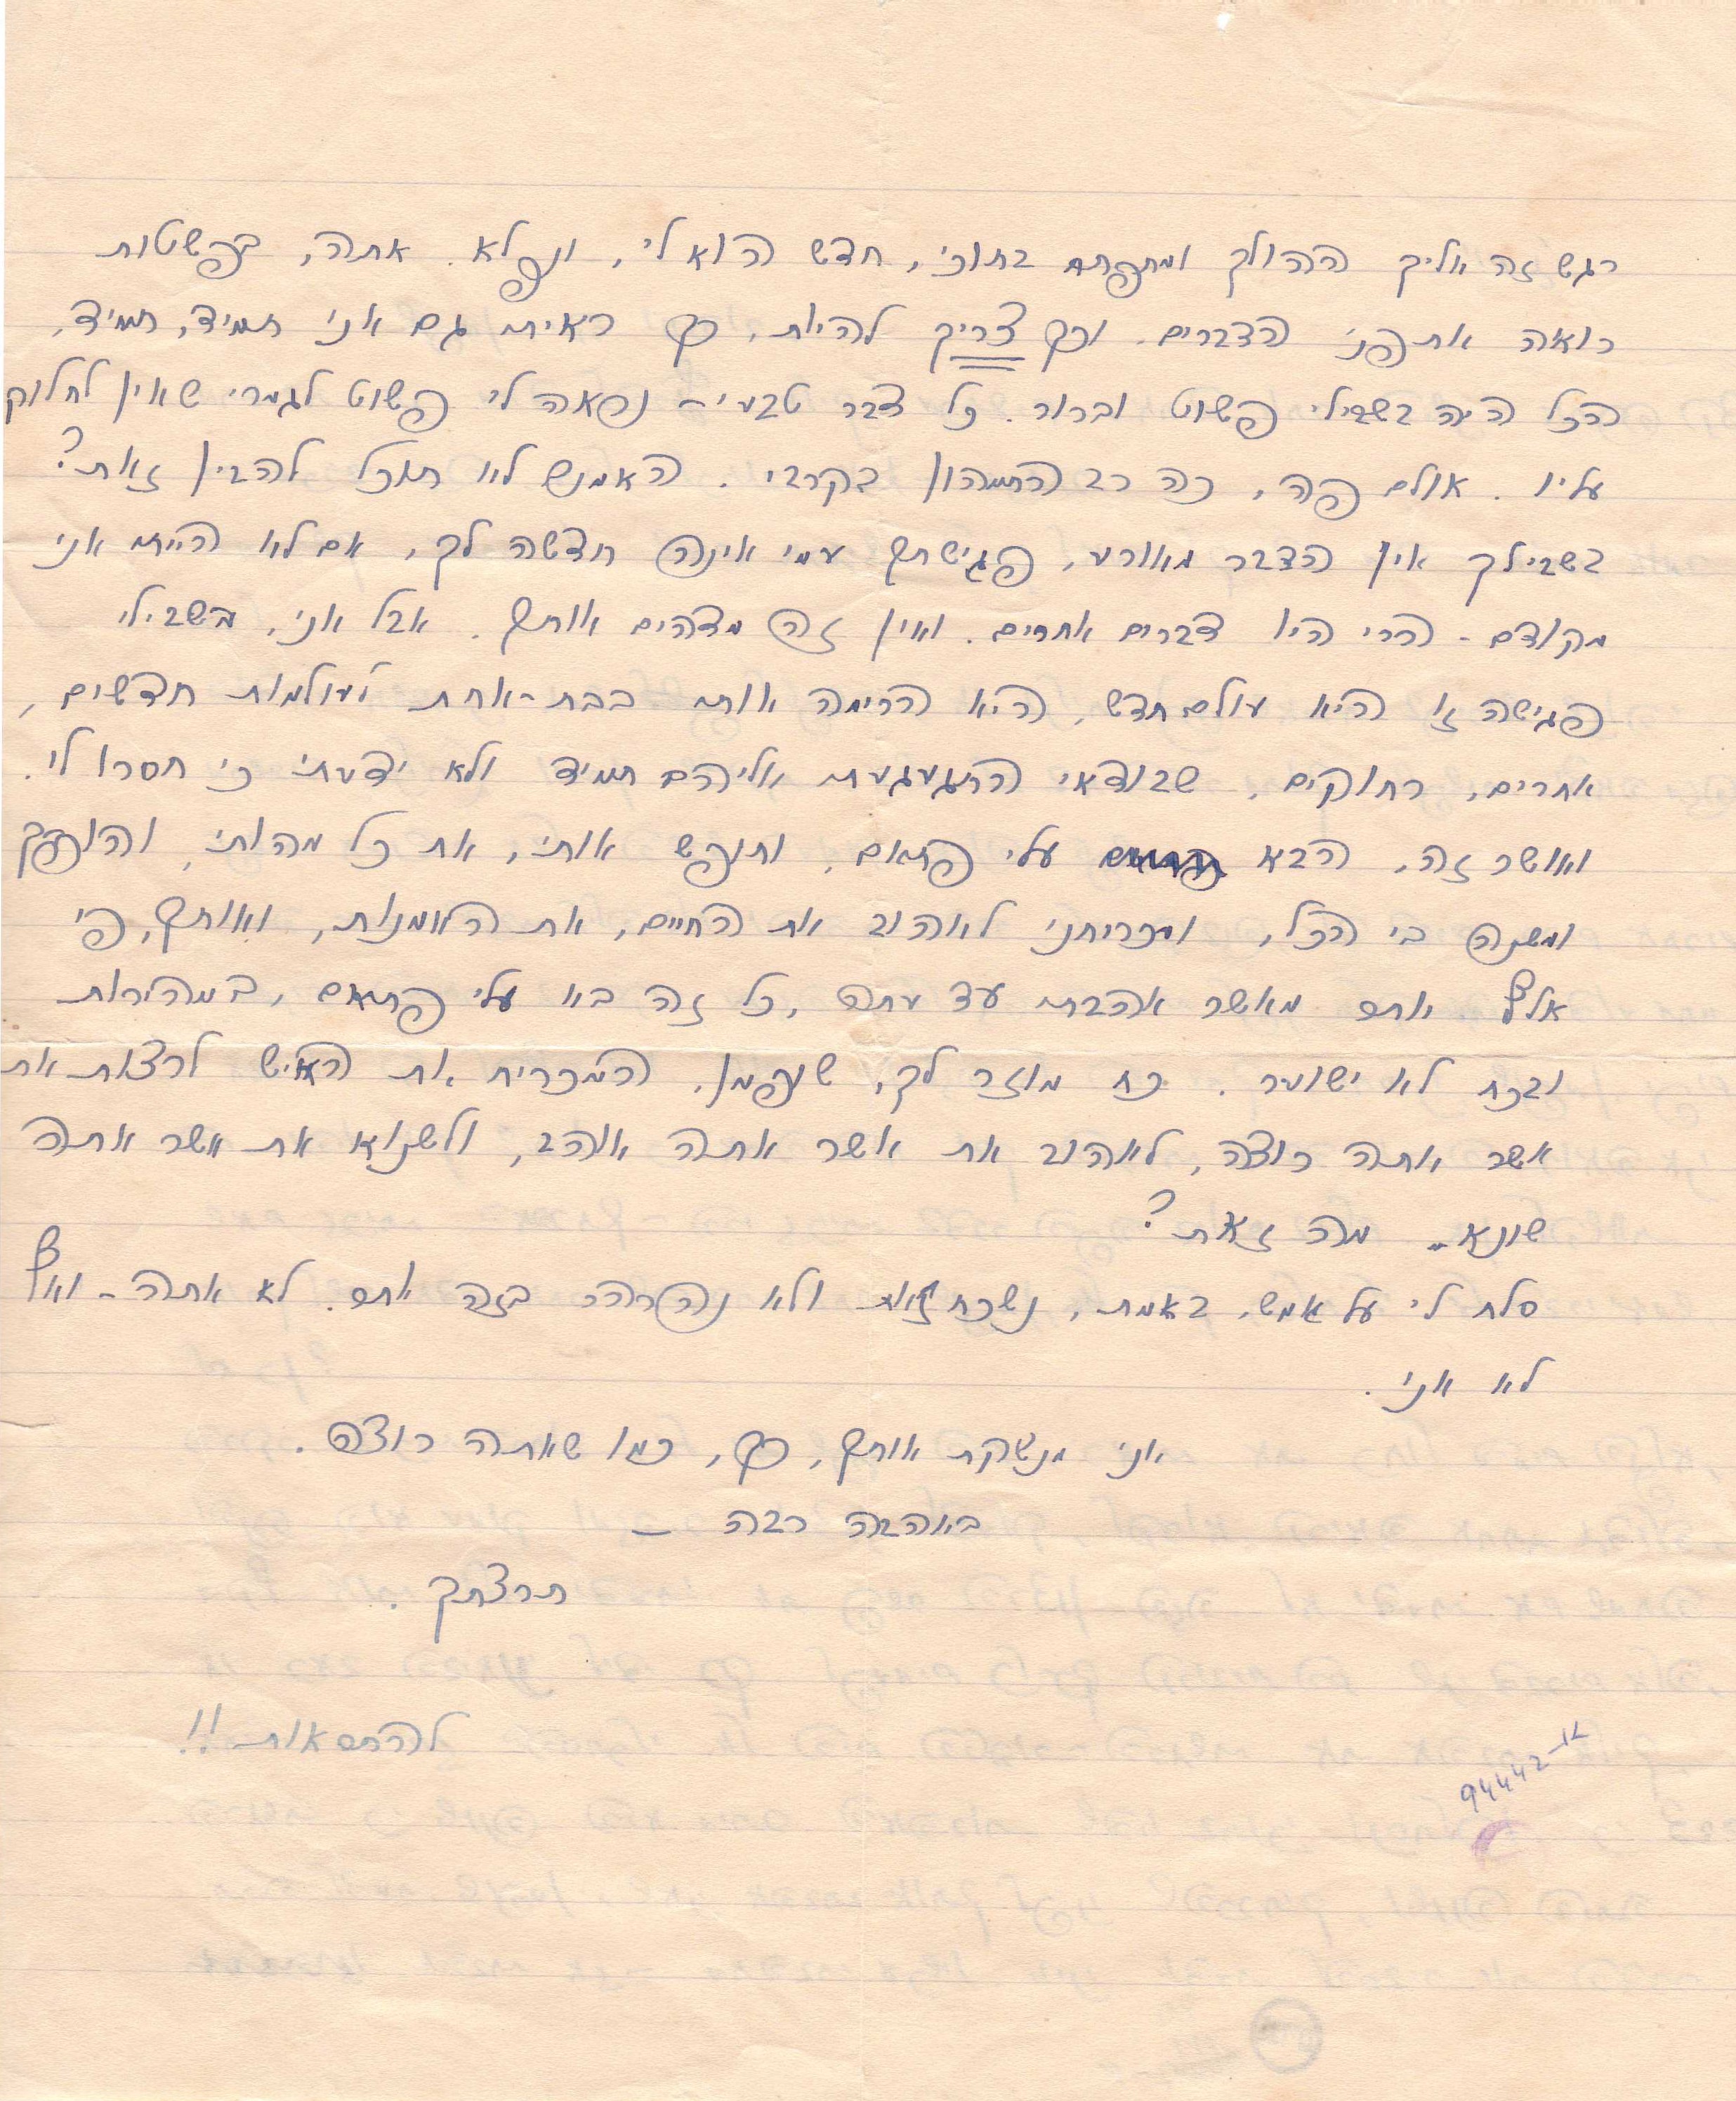 רגש זה אליך ההולך ומתפתח בתוכי, חדש הוא לי, ונפלא. אתה, בפשטות
רואה את פני הדברים. וכך צריך להיות, כך ראיתי גם אני תמיד, תמיד,
הכל היה בשבילי פשוט וברור. כל דבר טבעי - נראה לי פשוט לגמרי שאין לחלוק
עליו. אולם פה, כה רב התמהון בקרבי. האמנם לא תוכל להבין זאת?
בשבילך אין הדבר מאורע, פגישתך עמי אינה חדשה לך, אם לא הייתי אני
מקודם - הרי היו דברים אחרים. ואין זה מדהים אותך. אבל אני, בשבילי
פגישה זו היא עולם חדש, היא הרימה אותי בבת-אחת לעולמות חדשים,
אחרים, רחוקים, שבודאי התגעגעתי אליהם תמיד ולא ידעתי כי חסרו לי.
ואושר זה, הבא עלי פתאום, ותופש אותי, את כל מהותי, והופך
ומשנה בי הכל, ומכריחני לאהוב את החיים, את האומנות, ואותך, פי
אלף יותר מאשר אהבתי עד עתה, כל זה בא עלי פתאום, במהירות
ובכח לא ישוער. כח מוזר לך, שנפמן, המכריח את האיש לרצות את
אשר אתה רוצה, לאהוב את אשר אתה אוהב, ולשנוא את אשר אתה
שונא - מה זאת?
סלח לי על אמש, באמת, נשכח זאת ולא נהרהר בזה יותר. לא אתה - ואף
לא אני.
אני מנשקת אותך, כך, כמו שאתה רוצה.
באהבה רבה -
תרצתך.
להתראות!!
94442-א